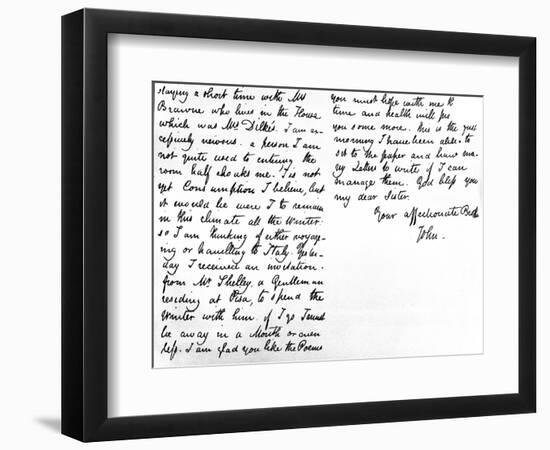 staying a short time with Mrs
Brawne who lives in the House
which was Mrs Dilke's. I am ex-
cessively nervous. a person I am
not quite used to entering the
room half choaks me. 'Tis not
yet Consumption I believe, but
it would be were I to remain
in this climate all the Winter:
so I am thinking of either voyag-
ing or travelling to Italy. Yester-
day I received an invitation.
from Mr Shelley, a Gentleman
residing at Pisa, to spend the
Winter with him. if I go I must
be away in a Month or even
less. I am glad you like the Poems
you must hope with me
time and health will
you some more. This is the
morning I have been able to
sit to the paper and have ma-
ny Letters to write if I can
manage them. God bless you
my dear Sister.
Your affectionate
John.